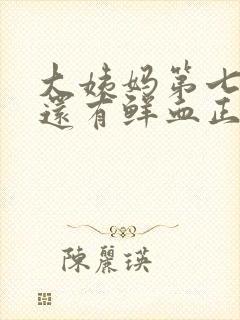 大姨妈第七
還有鲜血正
陳麗瑛